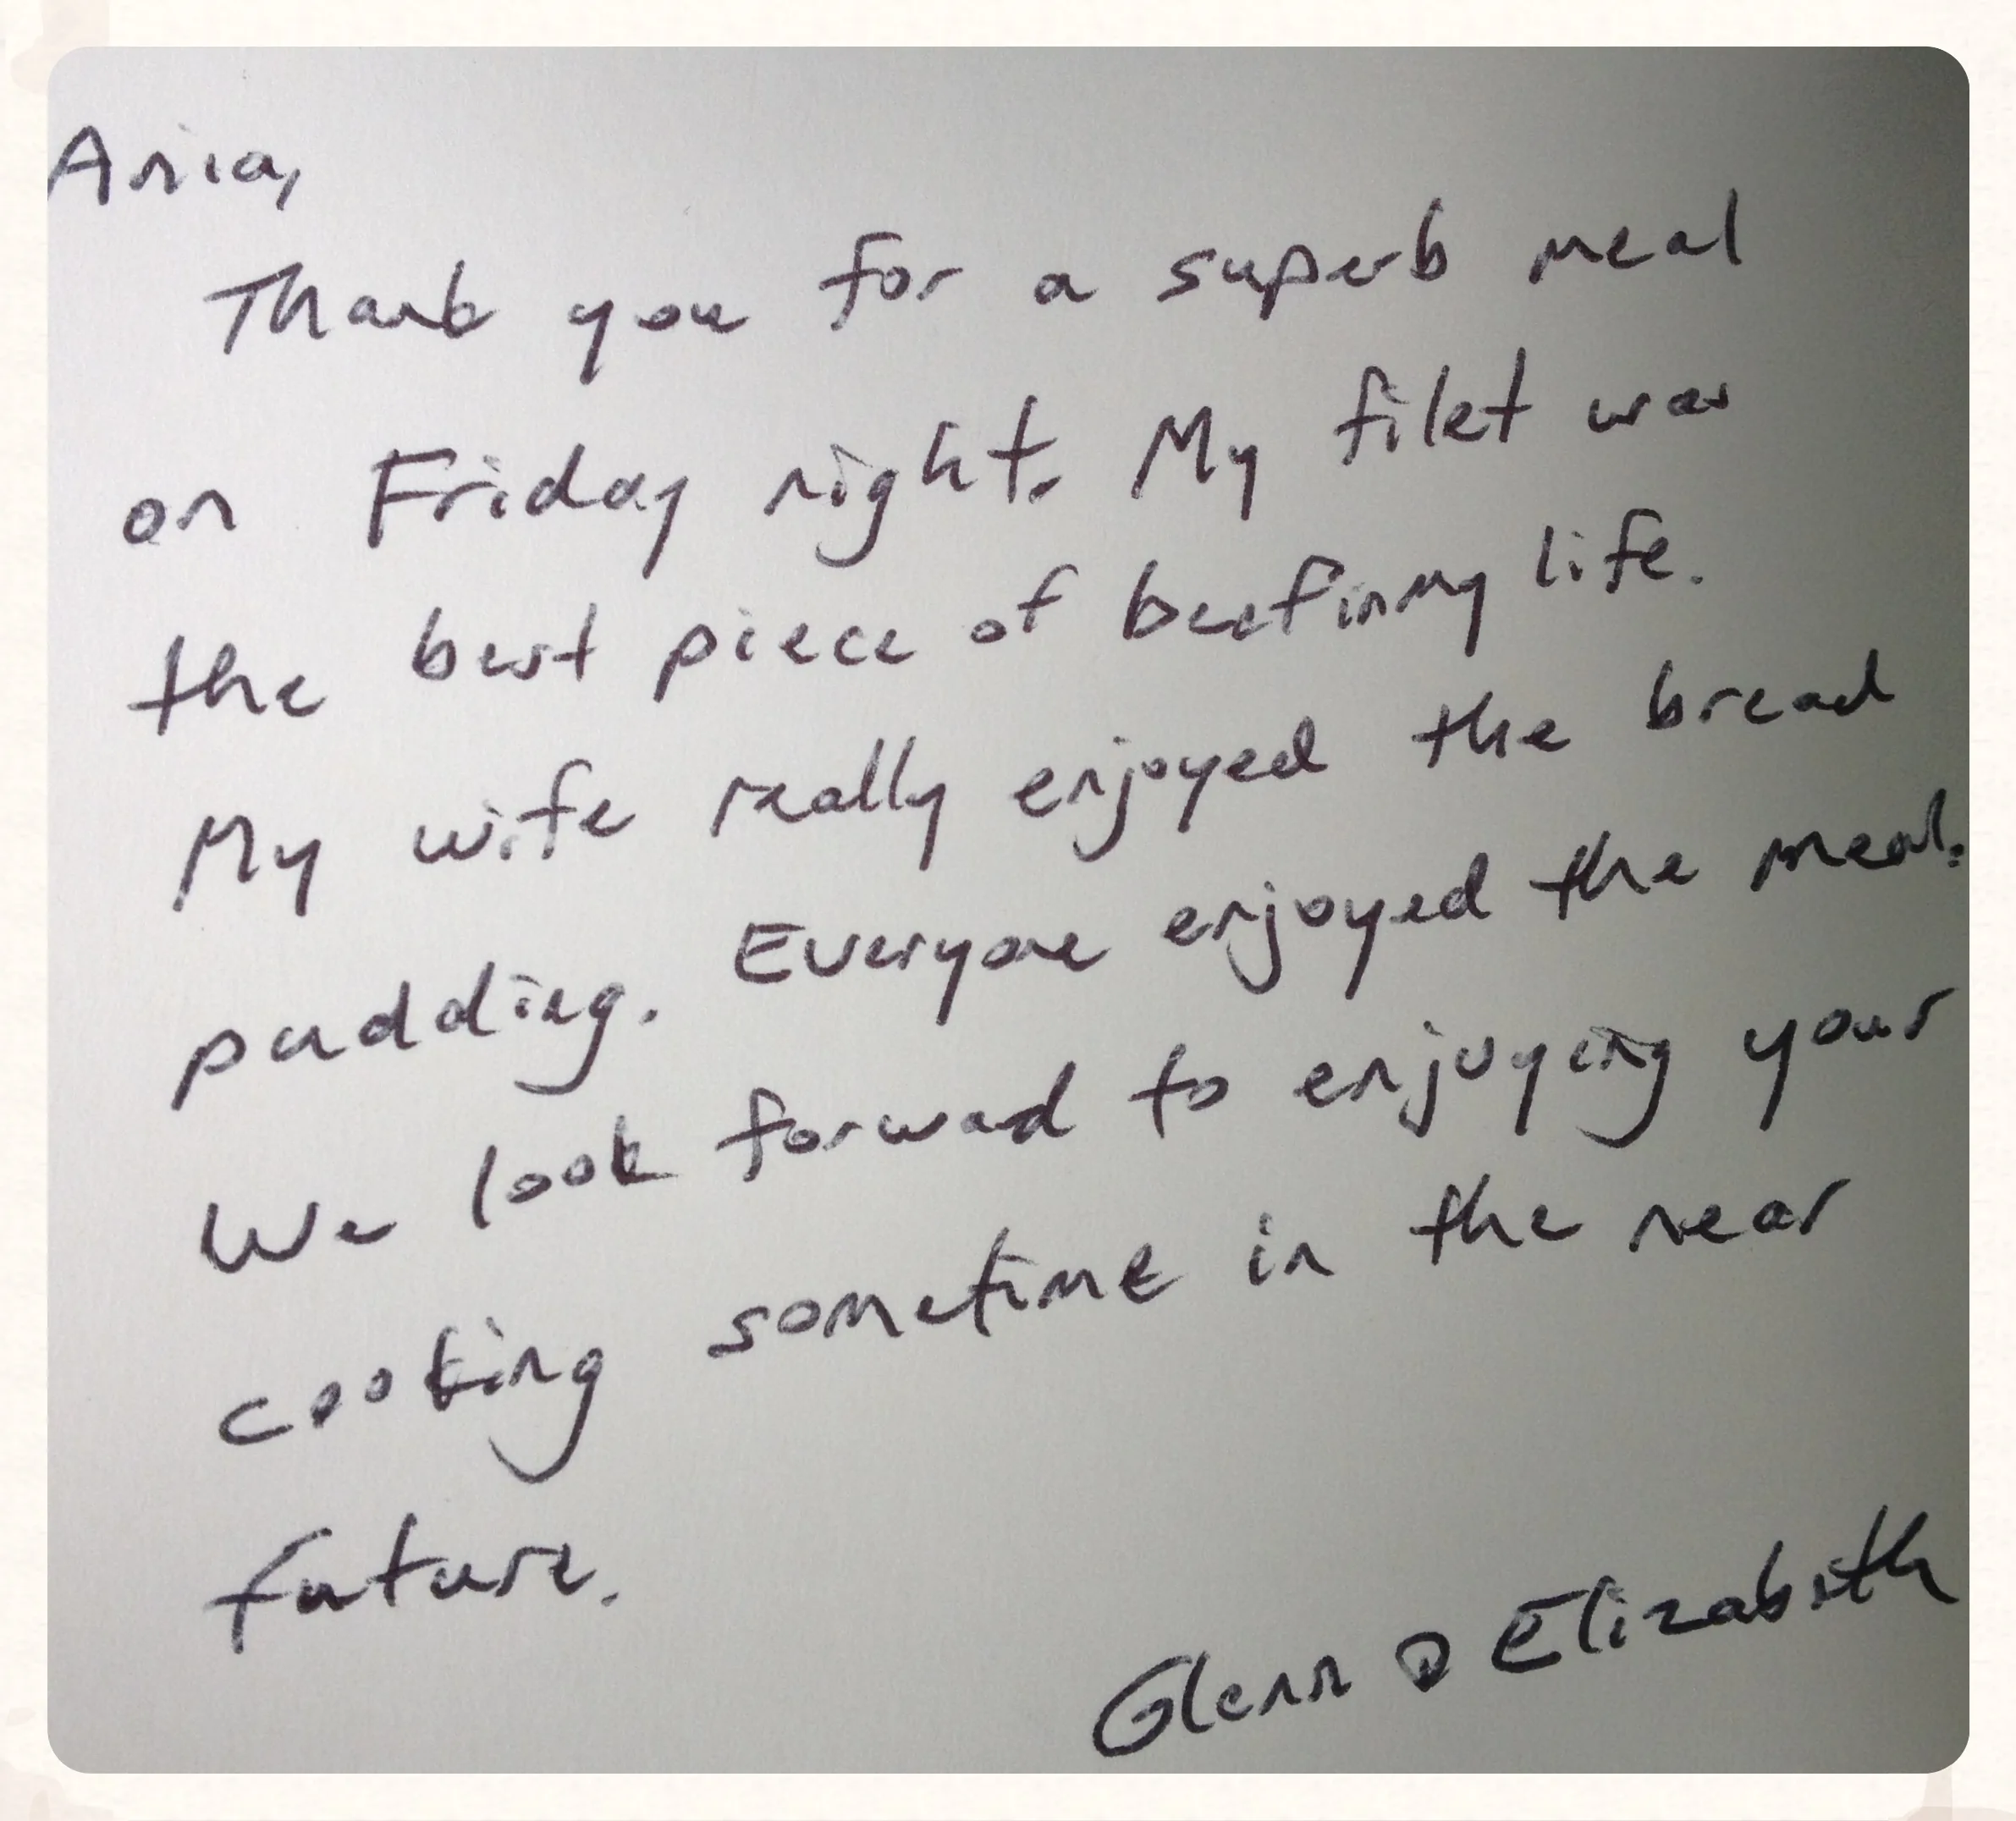 Ania,
Thank you for a superb meal
on Friday night. My filet was
the best piece of beef in my life.
My wife really enjoyed the bread
pudding. Everyone enjoyed the meal.
We look forward to enjoying your
cooking sometime in the near
future.
Glenn & Elizabeth